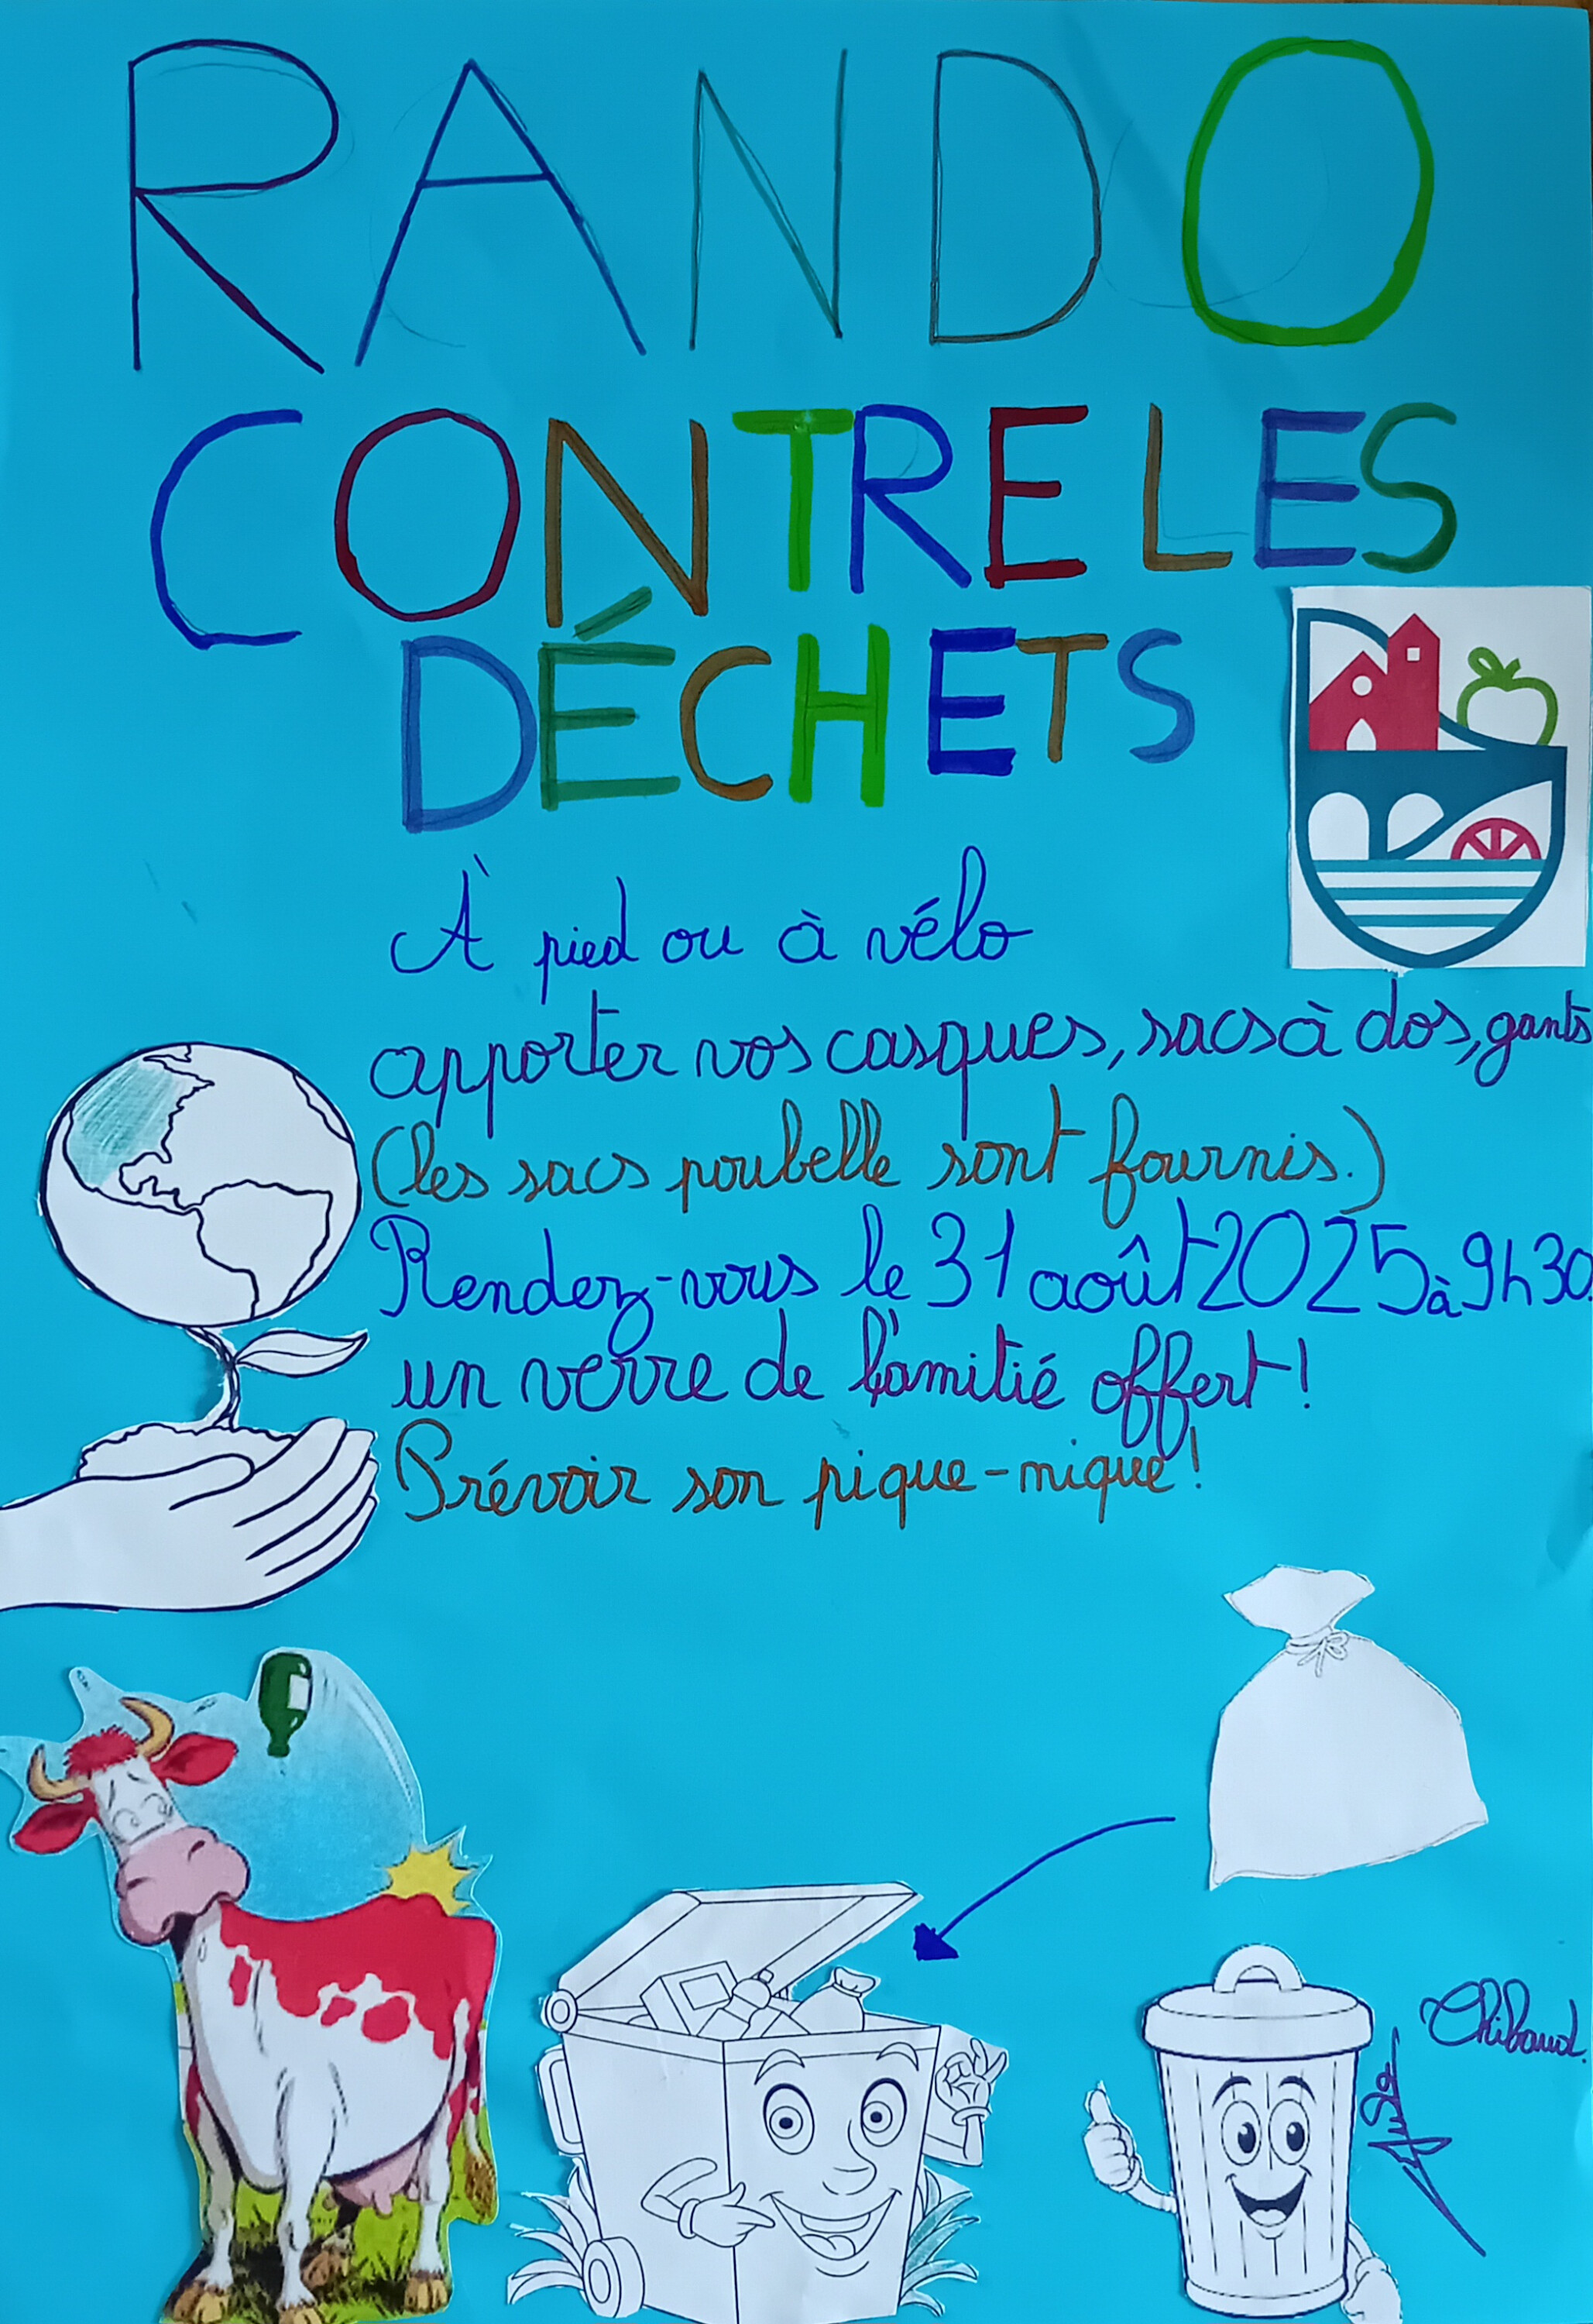 RANDO
CONTRE LES
DÉCHETS
À pied ou à vélo
apporter vos casques, sacs à dos, gants
(les sacs poubelle sont fournis.)
Rendez-vous le 31 août 2025 à 9h30.
un verre de l'amitié offert !
Prévoir son pique-nique !
Thibaud.